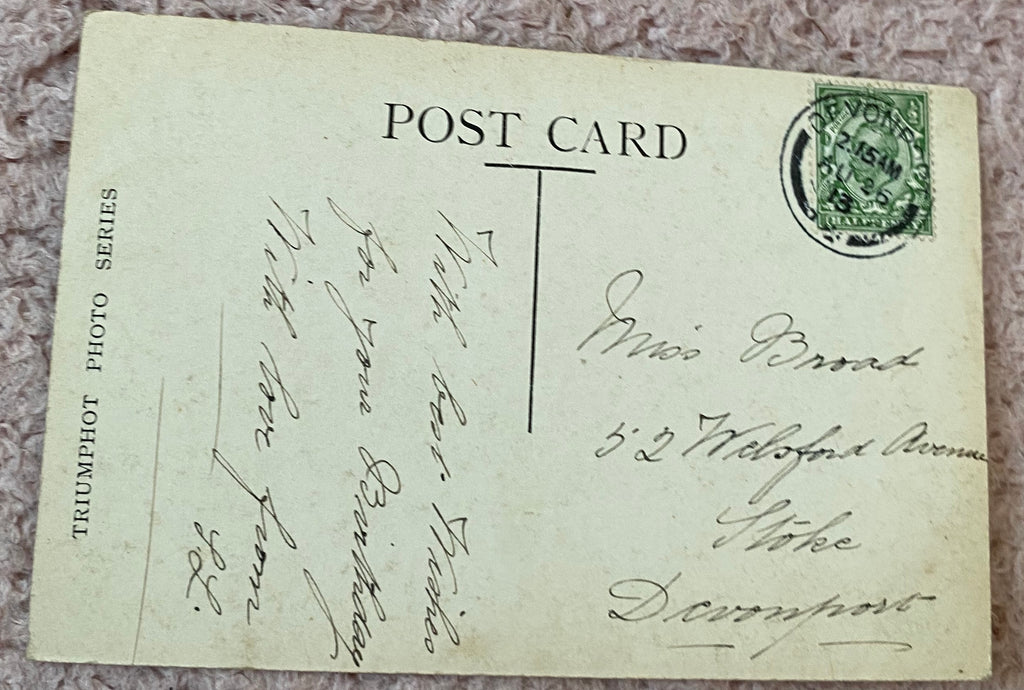 POST CARD
TRIUMPHOT PHOTO SERIES
With best Wishes
for your Birthday
With love from
L.L.
Miss Broad
52 Welsford Avenue
Stoke
Devonport
2.15AM
26
13
HALF